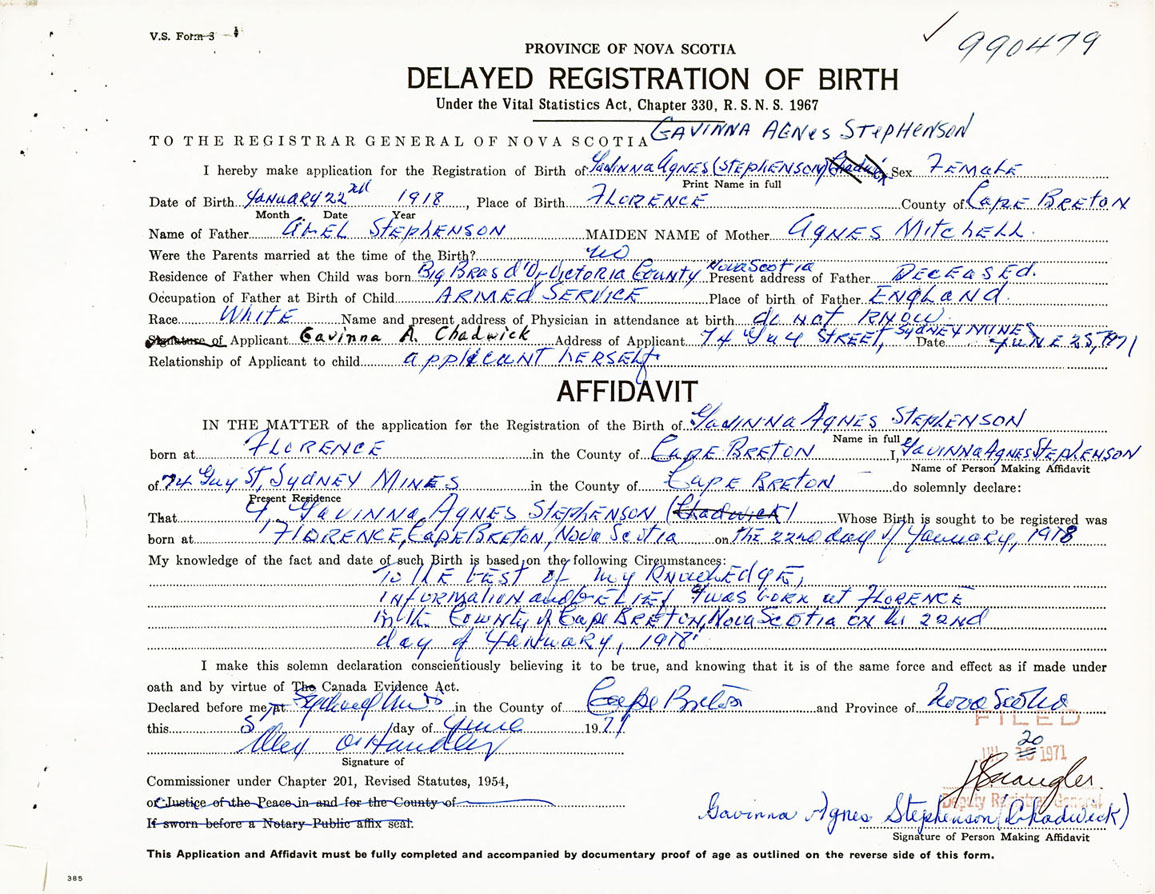 V.S. Form 3
990479
PROVINCE OF NOVA SCOTIA
DELAYED REGISTRATION OF BIRTH
Under the Vital Statistics Act, Chapter 330, R.S.N.S. 1967
TO THE REGISTRAR GENERAL OF NOVA SCOTIA GAVINNA AGNES STEPHENSON
I hereby make application for the Registration of Birth of GAVINNA AGNES (STEPHENSON) Chadwick Sex FEMALE
Print Name in full
Date of Birth JANUARY 22nd 1918, Place of Birth FLORENCE County of CAPE BRETON
Month Date Year
Name of Father ABEL STEPHENSON MAIDEN NAME of Mother AGNES MITCHELL
Were the Parents married at the time of the Birth? NO
Residence of Father when Child was born Big Bras d'Or Victoria County Nova Scotia Present address of Father DECEASED.
Occupation of Father at Birth of Child ARMED SERVICE Place of birth of Father ENGLAND.
Race WHITE Name and present address of Physician in attendance at birth do NOT KNOW.
Signature of Applicant Gavinna A. Chadwick Address of Applicant 74 Guy STREET, SYDNEY MINES Date JUNE 25, 1971
Relationship of Applicant to child applicant herself
AFFIDAVIT
IN THE MATTER of the application for the Registration of the Birth of GAVINNA AGNES STEPHENSON
Name in full
born at FLORENCE in the County of CAPE BRETON I, GAVINNA AGNES STEPHENSON
Name of Person Making Affidavit
of 74 Guy ST, SYDNEY MINES in the County of CAPE BRETON do solemnly declare:
Present Residence
That I, GAVINNA AGNES STEPHENSON (Chadwick) Whose Birth is sought to be registered was
born at FLORENCE, CAPE BRETON, NOVA SCOTIA on the 22nd day of January, 1918
My knowledge of the fact and date of such Birth is based on the following Circumstances:
To the best of my KNOWLEDGE,
INFORMATION and BELIEF I was born at FLORENCE
in the County of Cape BRETON, NOVA SCOTIA on the 22nd
day of JANUARY, 1918
I make this solemn declaration conscientiously believing it to be true, and knowing that it is of the same force and effect as if made under
oath and by virtue of The Canada Evidence Act.
Declared before me, at Sydney Mines in the County of Cape Breton and Province of Nova Scotia
this day of June 1971
FILED
20 1971
Signature of
Commissioner under Chapter 201, Revised Statutes, 1954,
or Justice of the Peace in and for the County of
Deputy Registrar General
If sworn before a Notary Public affix seal.
Gavinna Agnes Stephenson (Chadwick)
Signature of Person Making Affidavit
This Application and Affidavit must be fully completed and accompanied by documentary proof of age as outlined on the reverse side of this form.
385